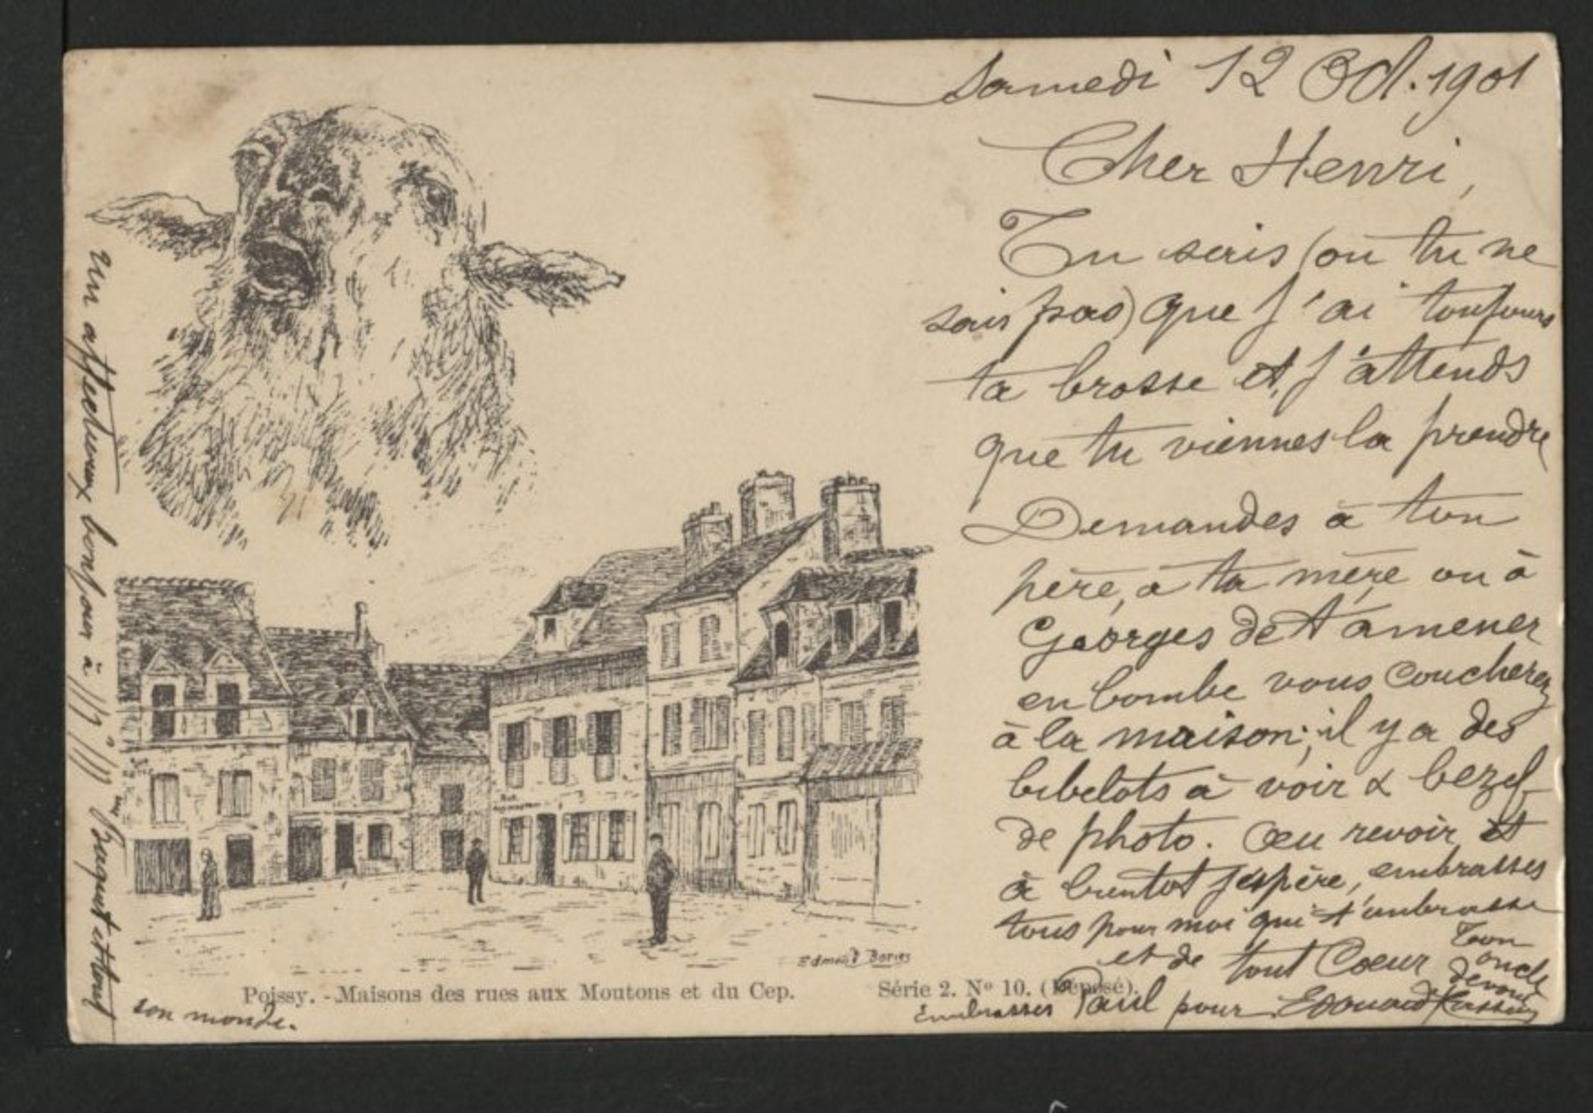 Samedi 12 Oct. 1901
Cher Henri,
Tu sais (ou tu ne
sais pas) que j'ai toujours
ta brosse et j'attends
que tu viennes la prendre
Demandes à ton
père, à ta mère ou à
Georges de t'amener
en bombe vous coucherez
à la maison; il y a des
bibelots à voir & bezef
de photo. Au revoir et
à bientot j'espère, embrasses
tous pour moi qui t'embrasse
et de tout Coeur Ton
oncle
dévoué
Embrasses Paul pour Edouard
un affectueux bonjour à Mr Mme et tout
son monde.
Edmond Bories
Poissy. - Maisons des rues aux Moutons et du Cep.
Série 2. No 10. (Déposé).